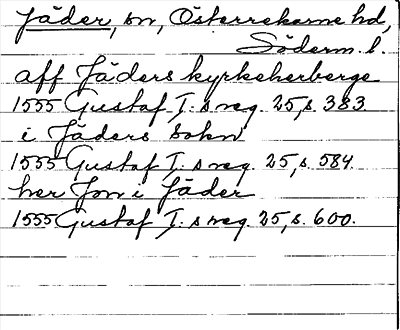 Jäder, sn, Österrekarne hd,
Söderm. l.
aff Jäders kyrkeherberge
1555 Gustaf I:s reg. 25, s. 383
i Jäders Sokn
1555 Gustaf I:s reg. 25, s. 584
her Jon i Jäder
1555 Gustaf I:s reg. 25, s. 600.